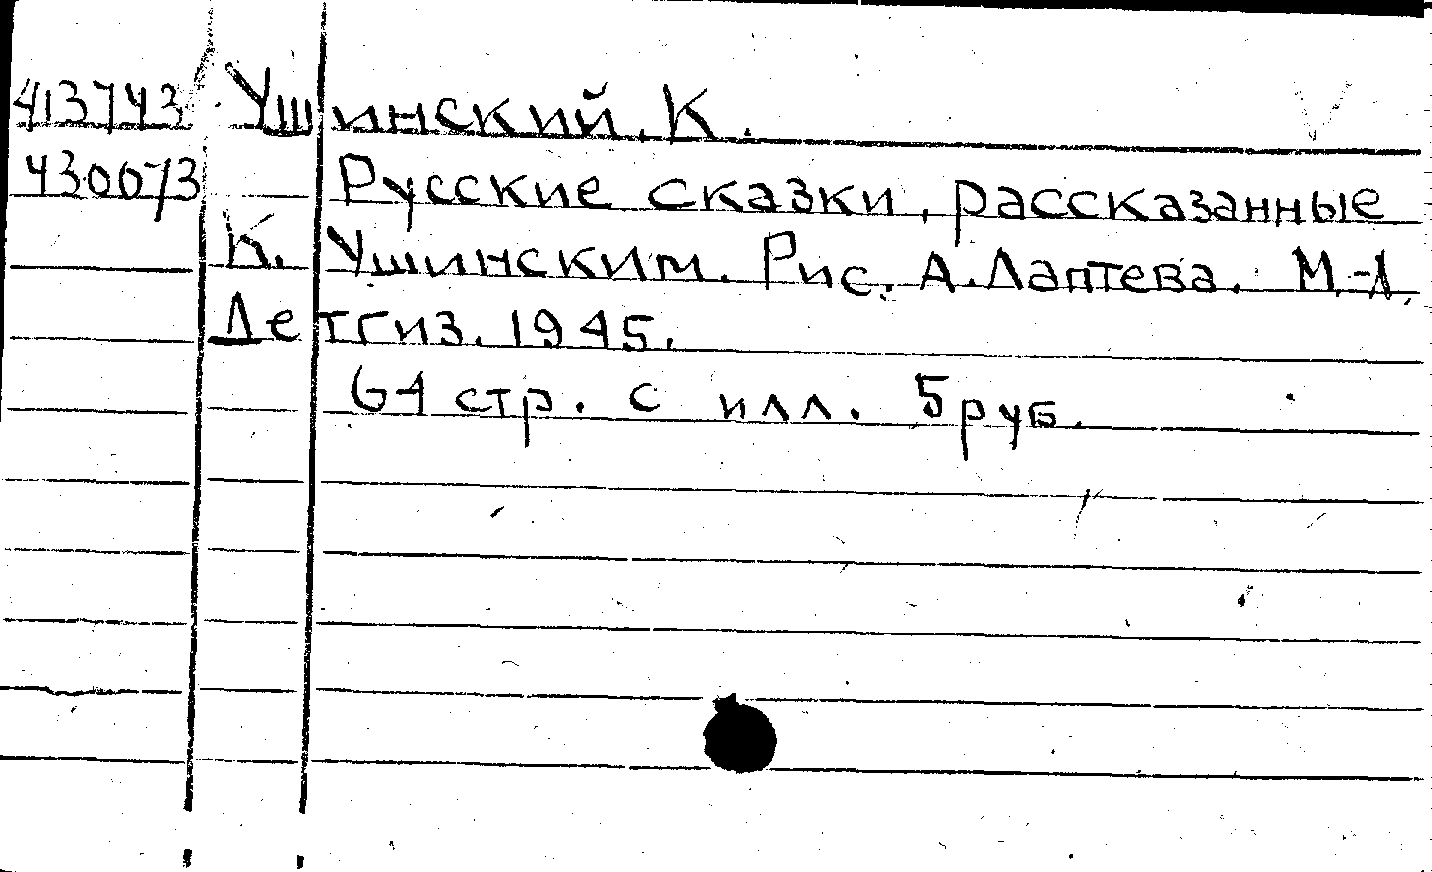 413743 Ушинский, К.
430073 Русские сказки, рассказанные
К. Ушинским. Рис. А. Лаптева. М.-Л,
Детгиз. 1945.
64 стр. с илл. 5 руб.